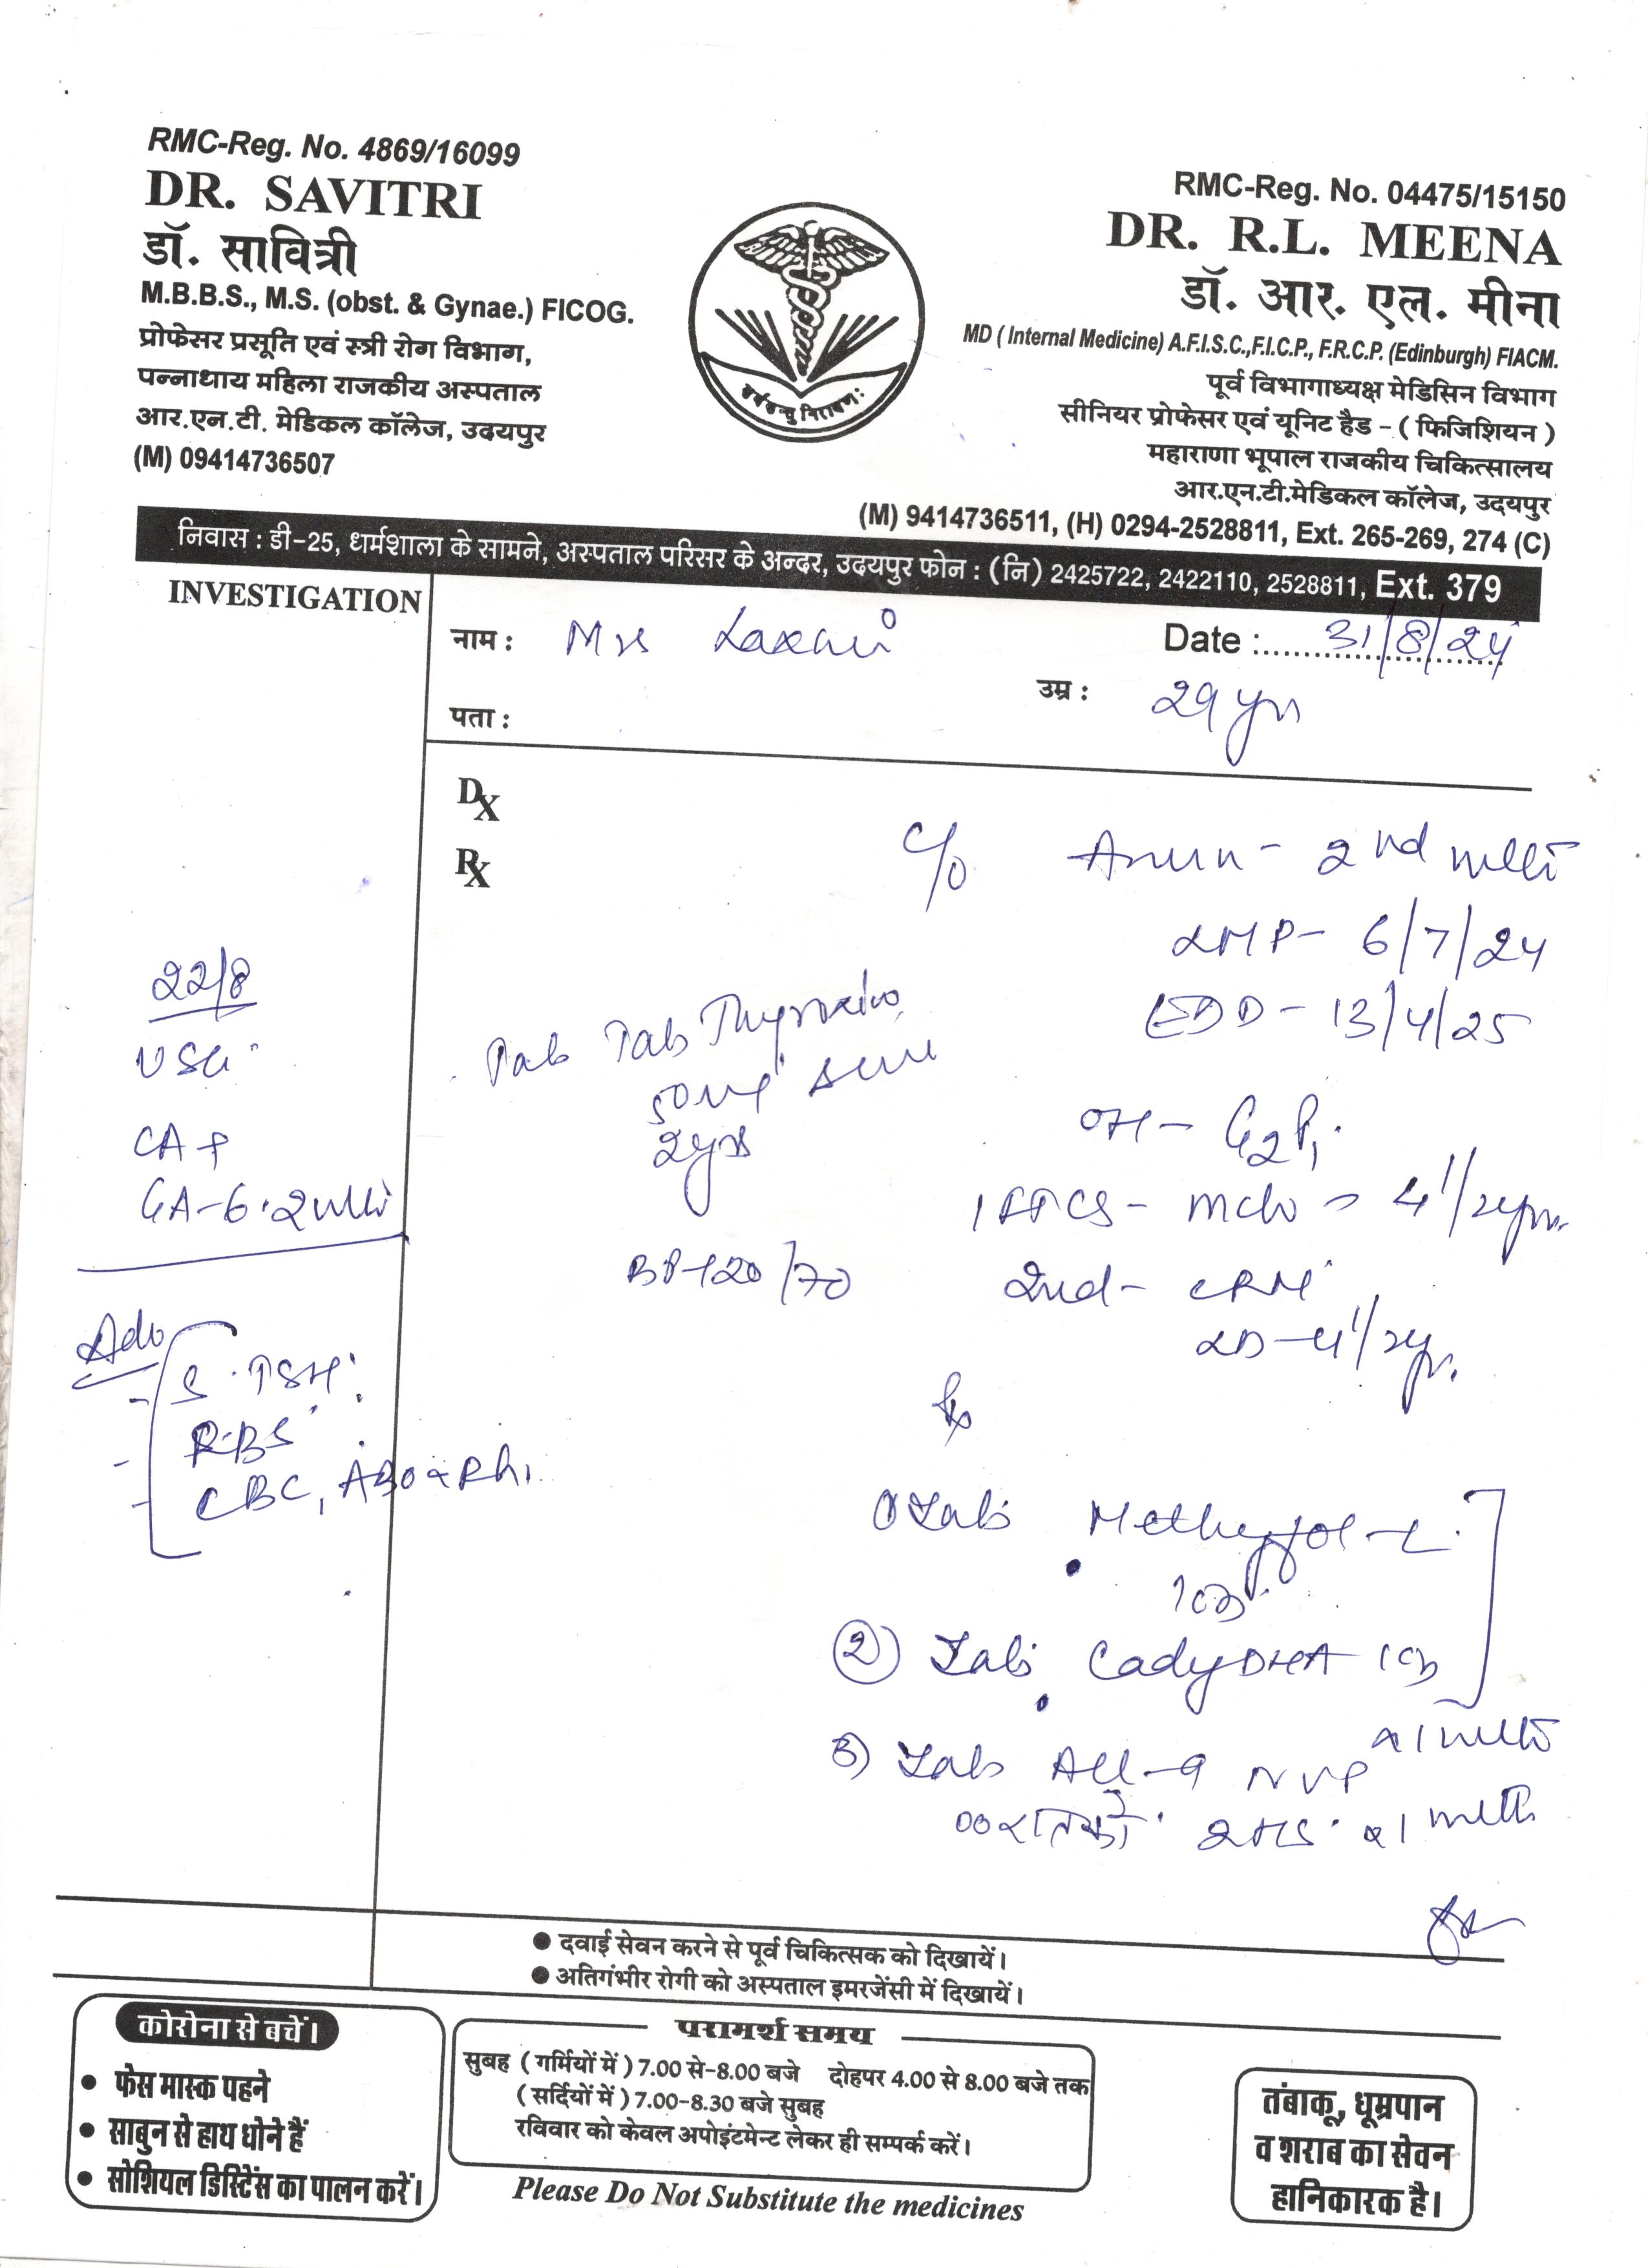 RMC-Reg. No. 4869/16099
DR. SAVITRI
डॉ. सावित्री
M.B.B.S., M.S. (obst. & Gynae.) FICOG.
प्रोफेसर प्रसूति एवं स्त्री रोग विभाग,
पन्नाधाय महिला राजकीय अस्पताल
आर.एन.टी. मेडिकल कॉलेज, उदयपुर
(M) 09414736507
RMC-Reg. No. 04475/15150
DR. R.L. MEENA
डॉ. आर. एल. मीना
MD ( Internal Medicine) A.F.I.S.C.,F.I.C.P., F.R.C.P. (Edinburgh) FIACM.
पूर्व विभागाध्यक्ष मेडिसिन विभाग
सीनियर प्रोफेसर एवं यूनिट हैड - ( फिजिशियन )
महाराणा भूपाल राजकीय चिकित्सालय
आर.एन.टी.मेडिकल कॉलेज, उदयपुर
(M) 9414736511, (H) 0294-2528811, Ext. 265-269, 274 (C)
निवास : डी-25, धर्मशाला के सामने, अस्पताल परिसर के अन्दर, उदयपुर फोन : (नि) 2425722, 2422110, 2528811, Ext. 379
INVESTIGATION
नाम : Mrs Laxmi
Date : 31/8/24
उम्र : 29 yrs
पता :
Dx
Rx
22/8
USG
CA +
GA-6.2
Adv
S. TSH
RBS
CBC, ABO & Rh
c/o 2nd
LMP- 6/7/24
EDD- 13/4/25
Tab
50 2 yrs
OH- G2P1
4 1/2 yrs
BP-120/70
2nd-
LD-4 1/2 yr.
① Tab
1 OD
② Tab Cady DHA 1 OD
3) Tab All-9 NVP
रात को 2 HS x 1
● दवाई सेवन करने से पूर्व चिकित्सक को दिखायें।
● अतिगंभीर रोगी को अस्पताल इमरजेंसी में दिखायें।
कोरोना से बचें।
● फेस मास्क पहने
● साबुन से हाथ धोने हैं
● सोशियल डिस्टिेंस का पालन करें।
परामर्श समय
सुबह ( गर्मियों में ) 7.00 से-8.00 बजे दोहपर 4.00 से 8.00 बजे तक
( सर्दियों में ) 7.00-8.30 बजे सुबह
रविवार को केवल अपोइंटमेन्ट लेकर ही सम्पर्क करें।
Please Do Not Substitute the medicines
तंबाकू, धूम्रपान
व शराब का सेवन
हानिकारक है।